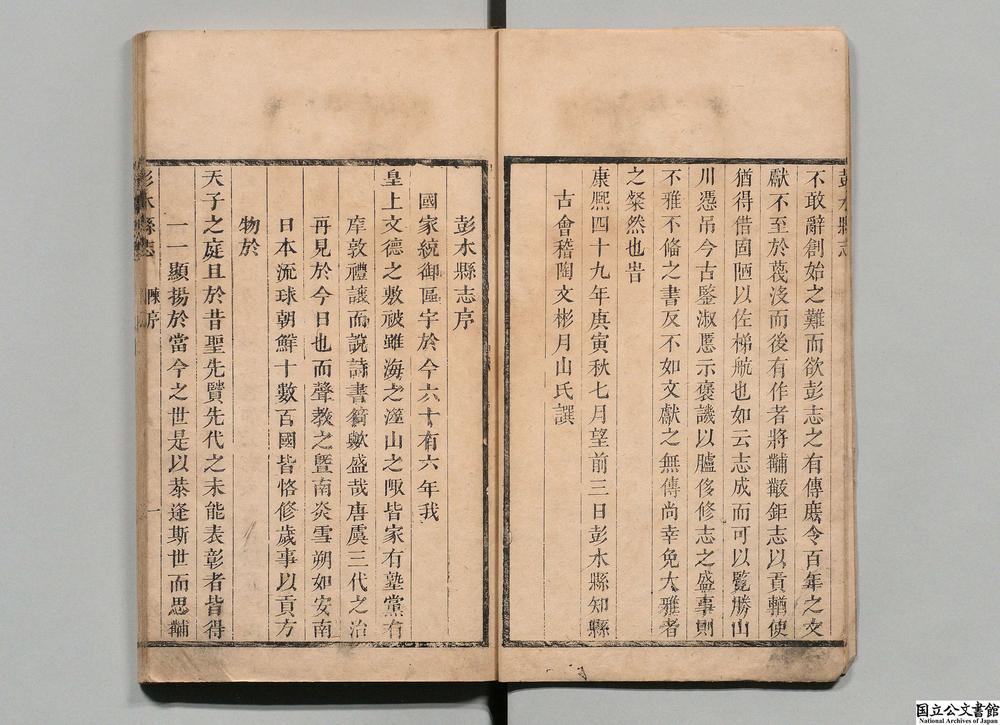 彭水縣志
不敢辭創始之難而欲彭志之有傳庶令百年之文
獻不至於蔑沒而後有作者將黼黻鉅志以貢輶使
猶得借固陋以佐梯航也如云志成而可以覧勝山
川憑吊今古鑒淑慝示褒譏以臚侈修志之盛事則
不雅不偹之書反不如文獻之無傳尚幸免大雅者
之粲然也旹
康熈四十九年庚寅秋七月望前三日彭水縣知縣
古會稽陶文彬月山氏譔
彭水縣志序
國家統御區宇於今六十有六年我
皇上文德之敷被雖海之澨山之陬皆家有塾黨有
庠敦禮讓而說詩書猗歟盛哉唐虞三代之治
再見於今日也而聲教之曁南炎雪朔如安南
日本流球朝鮮十數百國皆恪修歲事以貢方
物於
天子之庭且於昔聖先賢先代之未能表彰者皆得
一一顯揚於當今之世是以恭逢斯世而思黼
彭水縣志 陳序 一
国立公文書館
National Archives of Japan